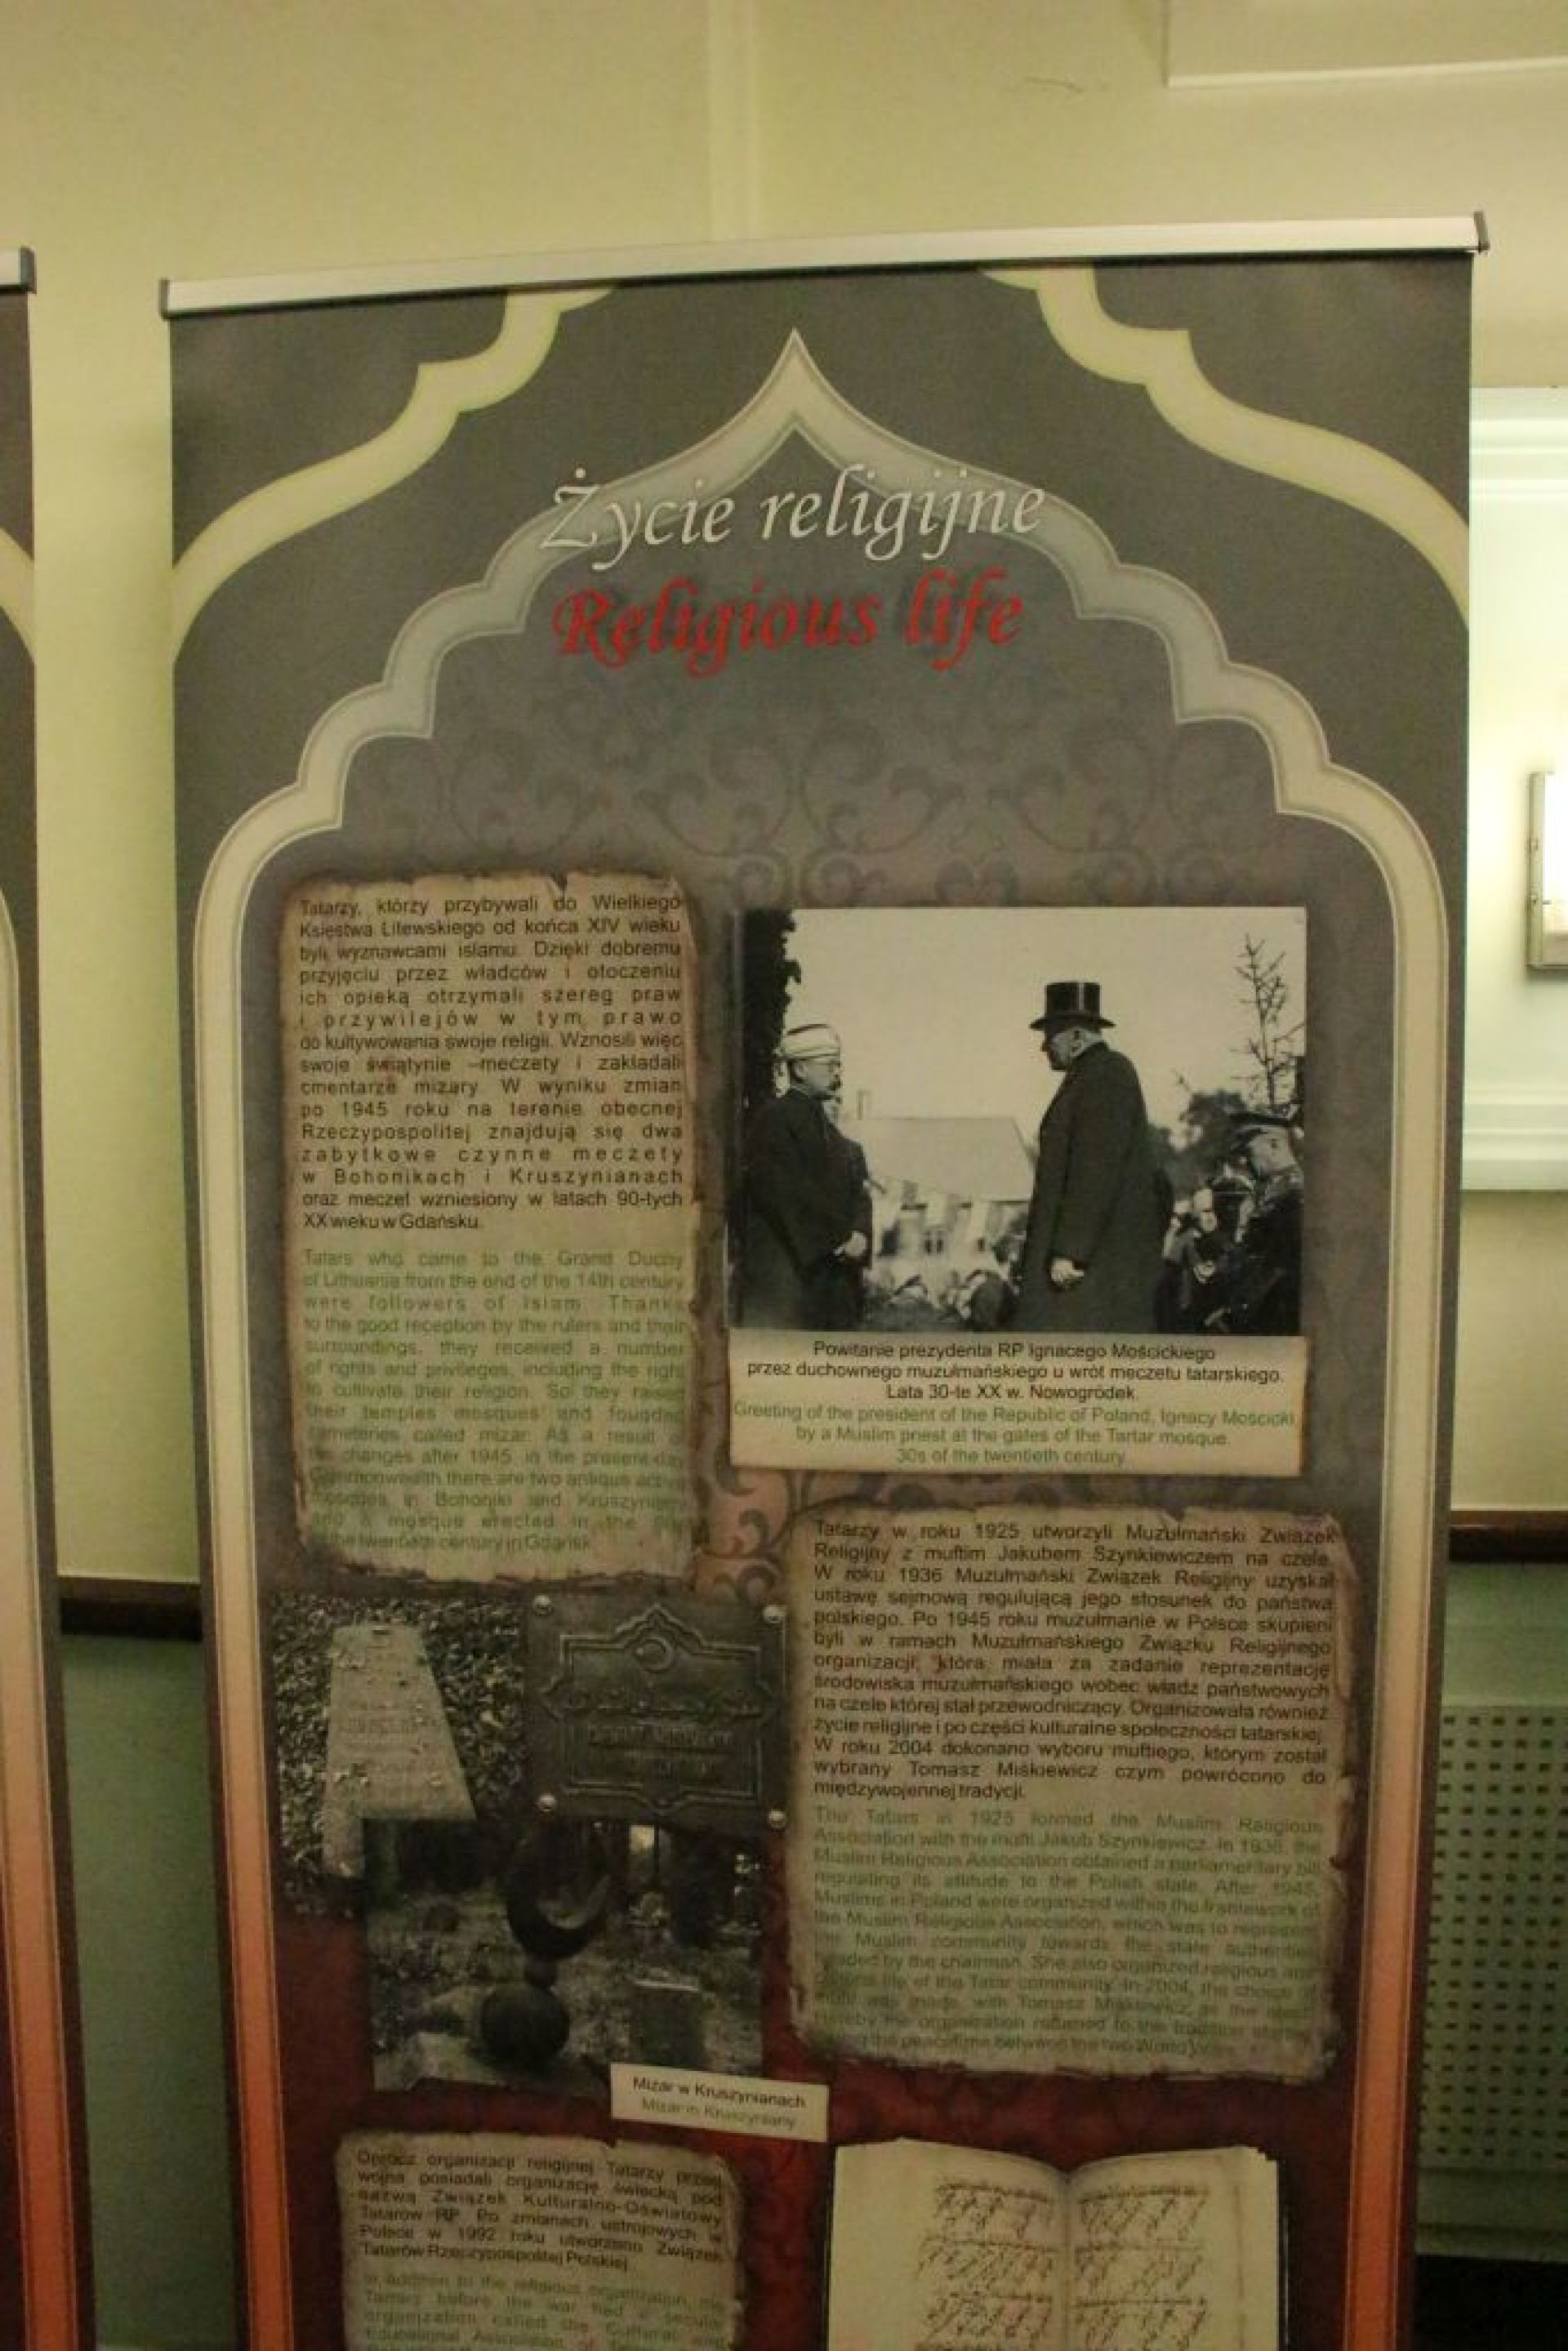 Życie religijne
Religious life
Tatarzy, którzy przybywali do Wielkiego
Księstwa Litewskiego od końca XIV wieku
byli wyznawcami islamu. Dzięki dobremu
przyjęciu przez władców i otoczeniu
ich opieką otrzymali szereg praw
i przywilejów w tym prawo
do kultywowania swoje religii. Wznosili więc
swoje świątynie –meczety i zakładali
cmentarze mizary. W wyniku zmian
po 1945 roku na terenie obecnej
Rzeczypospolitej znajdują się dwa
zabytkowe czynne meczety
w Bohonikach i Kruszynianach
oraz meczet wzniesiony w latach 90-tych
XX wieku w Gdańsku.
Tatars who came to the Grand Duchy
of Lithuania from the end of the 14th century
were followers of Islam. Thanks
to the good reception by the rulers and their
surroundings, they received a number
of rights and privileges, including the right
to cultivate their religion. So they raised
their temples mosques and founded
cemeteries called mizar. As a result of
the changes after 1945, in the present-day
Commonwealth there are two antique active
mosques in Bohoniki and Kruszyniany
and a mosque erected in the 90s
of the twentieth century in Gdańsk.
Powitanie prezydenta RP Ignacego Mościckiego
przez duchownego muzułmańskiego u wrót meczetu tatarskiego.
Lata 30-te XX w. Nowogródek.
Greeting of the president of the Republic of Poland, Ignacy Mościcki
by a Muslim priest at the gates of the Tartar mosque.
30s of the twentieth century.
Tatarzy w roku 1925 utworzyli Muzułmański Związek
Religijny z muftim Jakubem Szynkiewiczem na czele.
W roku 1936 Muzułmański Związek Religijny uzyskał
ustawę sejmową regulującą jego stosunek do państwa
polskiego. Po 1945 roku muzułmanie w Polsce skupieni
byli w ramach Muzułmańskiego Związku Religijnego
organizacji, która miała za zadanie reprezentację
środowiska muzułmańskiego wobec władz państwowych
na czele której stał przewodniczący. Organizowała również
życie religijne i po części kulturalne społeczności tatarskiej.
W roku 2004 dokonano wyboru muftiego, którym został
wybrany Tomasz Miśkiewicz czym powrócono do
międzywojennej tradycji.
The Tatars in 1925 formed the Muslim Religious
Association with the mufti Jakub Szynkiewicz. In 1936, the
Muslim Religious Association obtained a parliamentary bill
regulating its attitude to the Polish state. After 1945,
Muslims in Poland were organized within the framework of
the Muslim Religious Association, which was to represent
the Muslim community towards the state authorities
headed by the chairman. She also organized religious and
life of the Tatar community. In 2004, the choice of
mufti was made, with Tomasz Miśkiewicz as the
thereby the organization returned to the tradition
the peacetime between the two World Wars.
Mizar w Kruszynianach
Mizar in Kruszyniany
Oprócz organizacji religijnej Tatarzy przed
wojną posiadali organizację świecką pod
nazwą Związek Kulturalno-Oświatowy
Tatarów RP. Po zmianach ustrojowych w
Polsce w 1992 roku utworzono Związek
Tatarów Rzeczypospolitej Polskiej.
In addition to the religious organization, the
Tatars before the war had a secular
organization called the Cultural and
Educational Association of